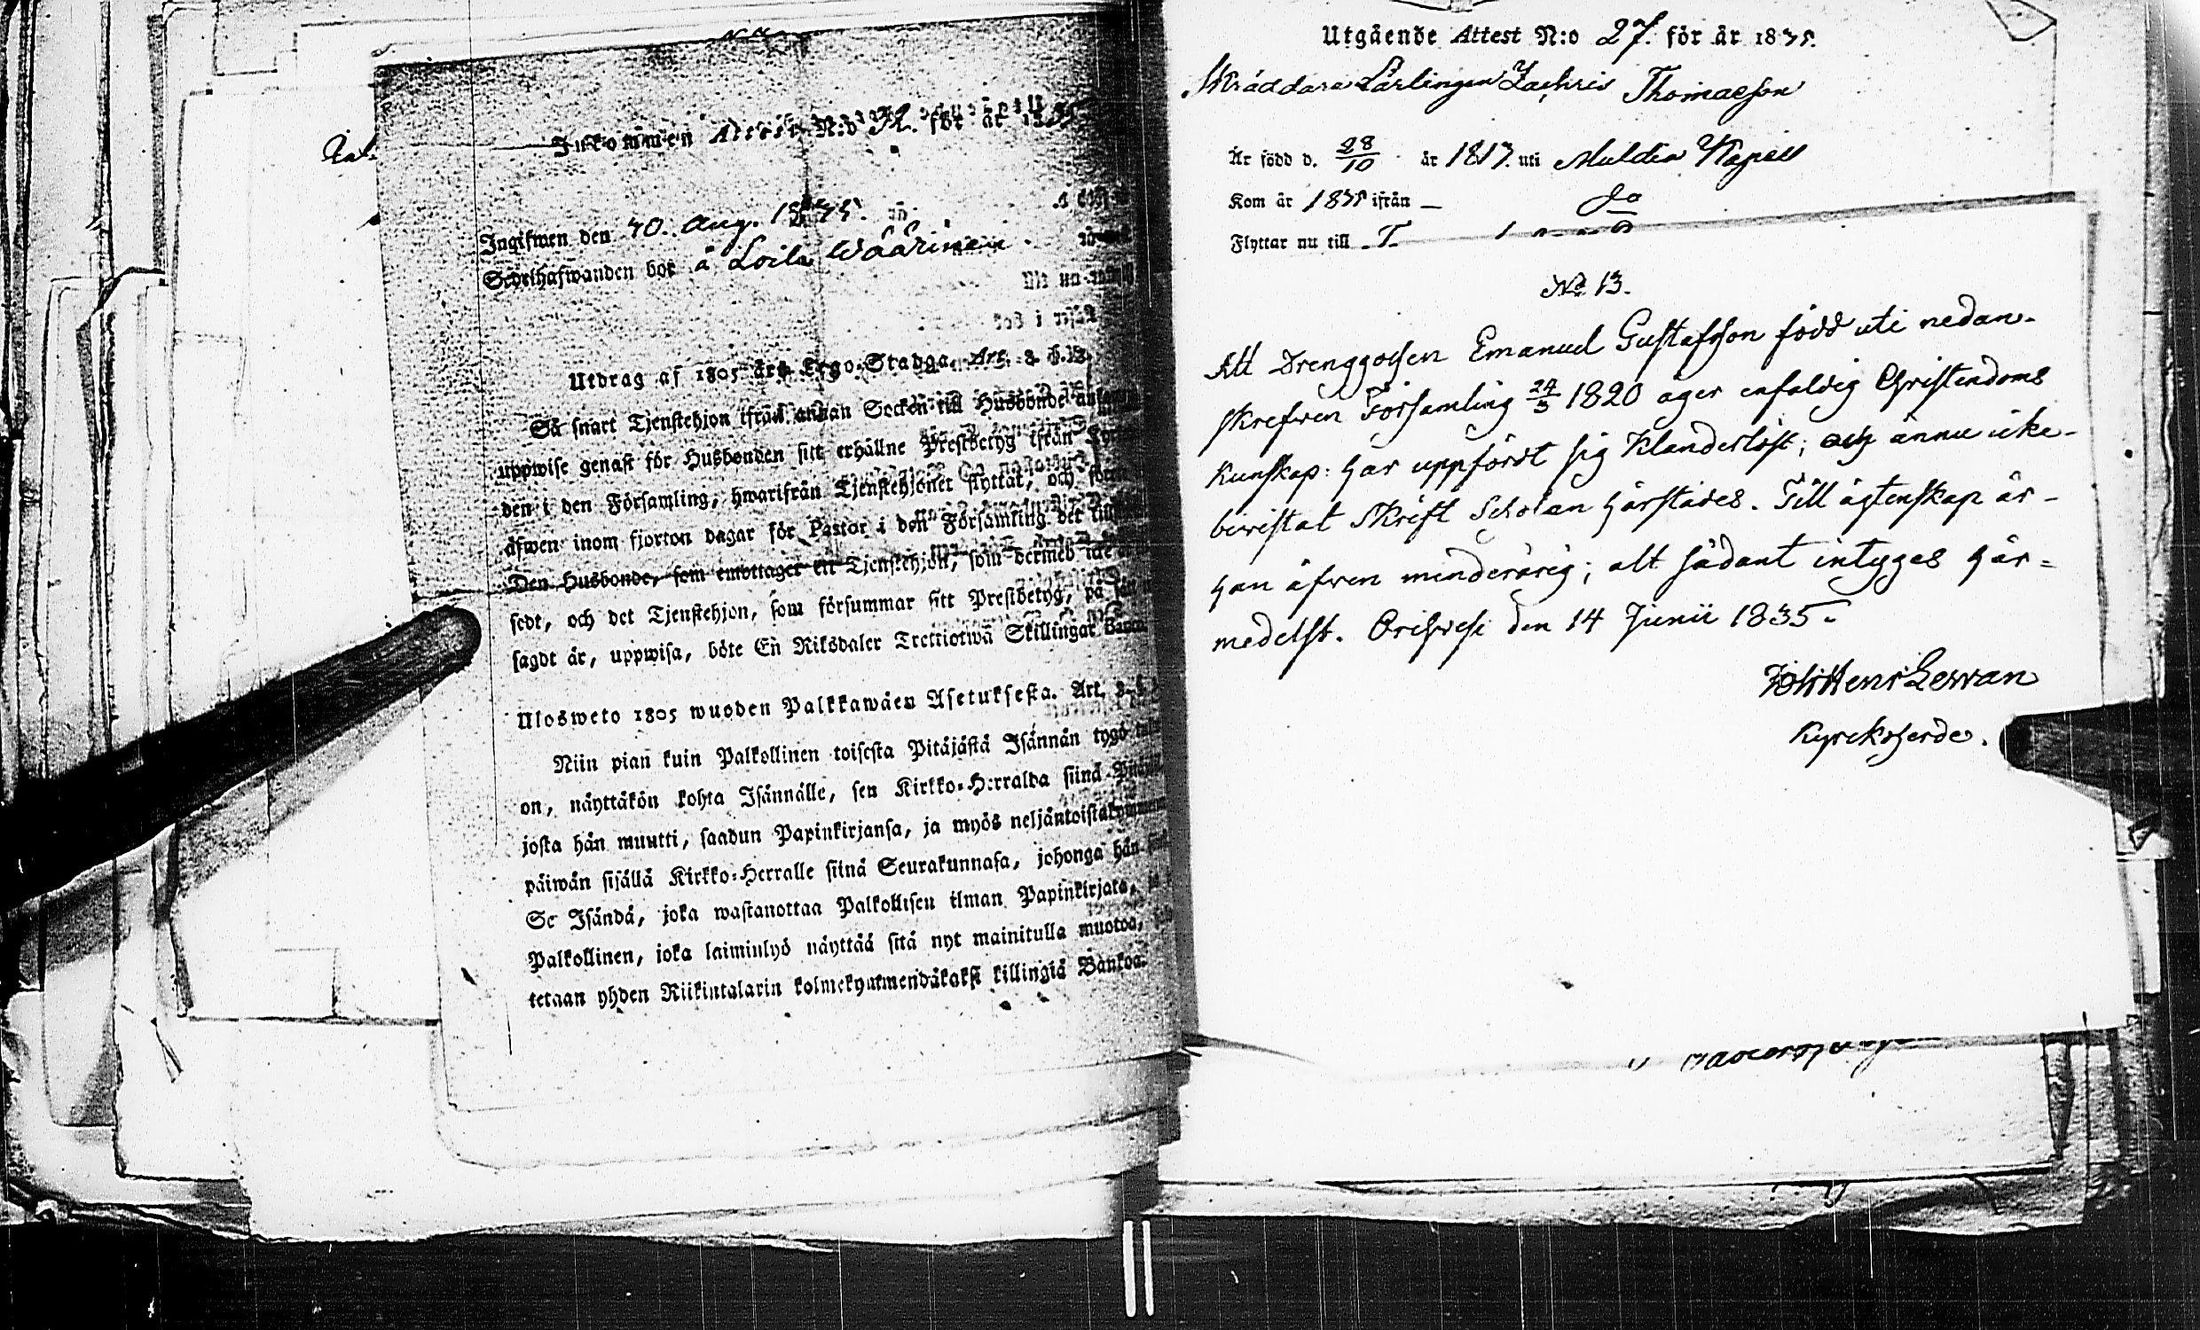 Inkommen Attest N:o 32. för år 1835
Ingifwen den 30. Aug. 1835.
Sedelhafwanden bor å Loila Wäärinen.
Utdrag af 1805 års Lego-Stadga. Art. 3. §. 12.
Så snart Tjenstehjon ifrån annan Socken till Husbonde
uppwise genast för Husbonden sitt erhållne Prestbetyg ifrån
den i den Församling, hwarifrån Tjenstehjonet flyttat, och
äfwen inom fjorton dagar för Pastor i den Församling det
Den Husbonde, som emottager ett Tjenstehjon, som dermed icke
sedt, och det Tjenstehjon, som försummar sitt Prestbetyg, på
sagdt är, uppwisa, böte En Riksdaler Trettiotwå Skillingar Banco.
Ulosweto 1805 wuoden Palkkawäen Asetuksesta. Art. 3.
Niin pian kuin Palkollinen toisesta Pitäjästä Isännän tygö
on, näyttäkön kohta Isännälle, sen Kirkko-Herralda siinä
josta hän muutti, saadun Papinkirjansa, ja myös neljäntoistakymmenen
päiwän sisällä Kirkko-Herralle siinä Seurakunnasa, johonga hän
Se Isändä, joka wastanottaa Palkollisen ilman Papinkirjata,
Palkollinen, joka laiminlyö näyttää sitä nyt mainitulla muotoa,
tetaan yhden Riikintalarin kolmekymmendäkaksi killingiä Bankoa.
Utgående Attest N:o 27. för år 1835.
Skräddare Lärlingen Zachris Thomasson
Är född d. 28/10 år 1817. uti Muldia Kapell
Kom år 1835 ifrån —
Flyttar nu till
No 13.
Att Drenggossen Emanuel Gustafsson född uti nedan-
skrefwen Församling 24/3 1820 äger enfaldig Christendoms
kunskap: har uppfördt sig klanderlöst; och ännu icke-
bewistat Skrift Scholan härstädes. Till ägtenskap är-
han äfwen minderårig; alt sådant intyges här=
medelst. Orihvesi den 14 Junii 1835.
Joh Henr Lewan
Kyrckoherde.